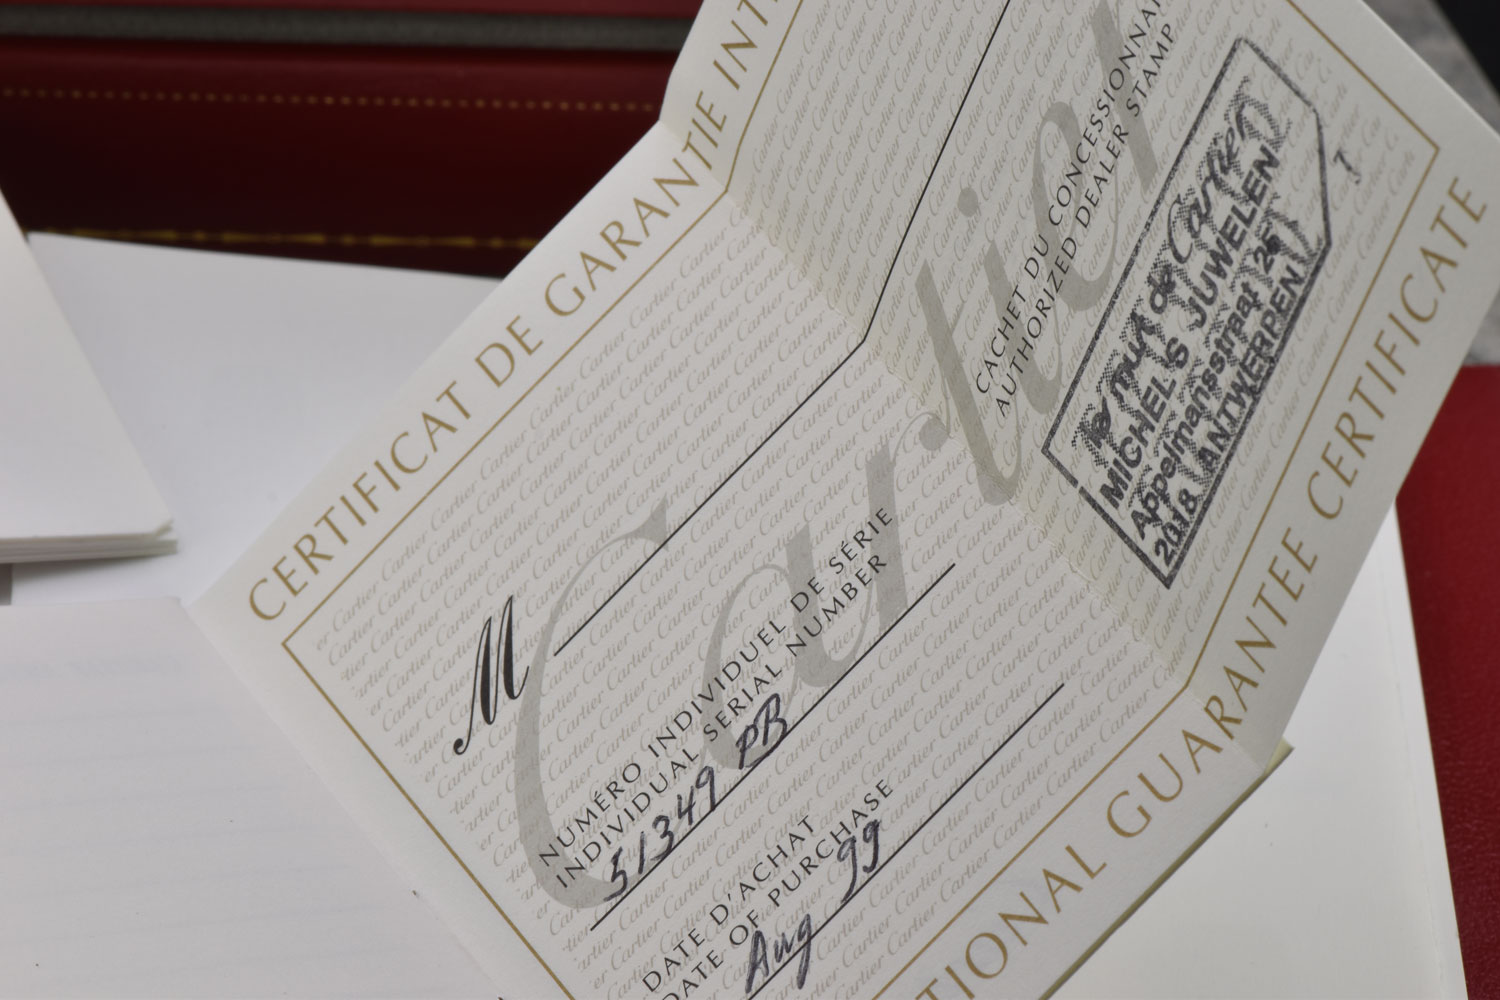 CERTIFICAT DE GARANTIE
Cartier
M
NUMÉRO INDIVIDUEL DE SÉRIE
INDIVIDUAL SERIAL NUMBER
51349 PB
DATE D'ACHAT
DATE OF PURCHASE
Aug 99
CACHET DU
AUTHORIZED DEALER STAMP
les must de Cartier
MICHELS JUWELEN
Appelmansstraat 25
2018 ANTWERPEN
GUARANTEE CERTIFICATE